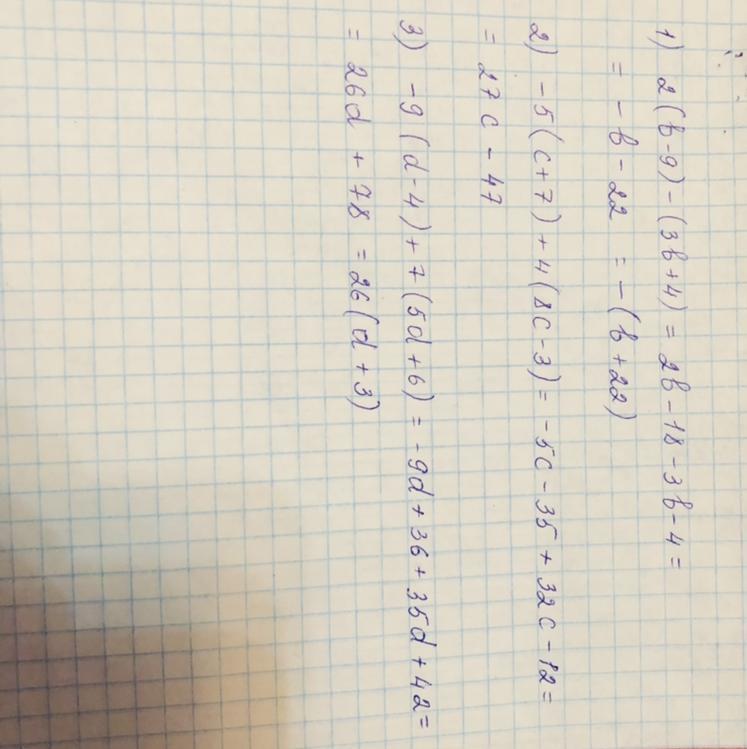 1) 2(b-9)-(3b+4)=2b-18-3b-4=
=-b-22=-(b+22)
2) -5(c+7)+4(8c-3)=-5c-35+32c-12=
=27c-47
3) -9(d-4)+7(5d+6)=-9d+36+35d+42=
=26d+78=26(d+3)